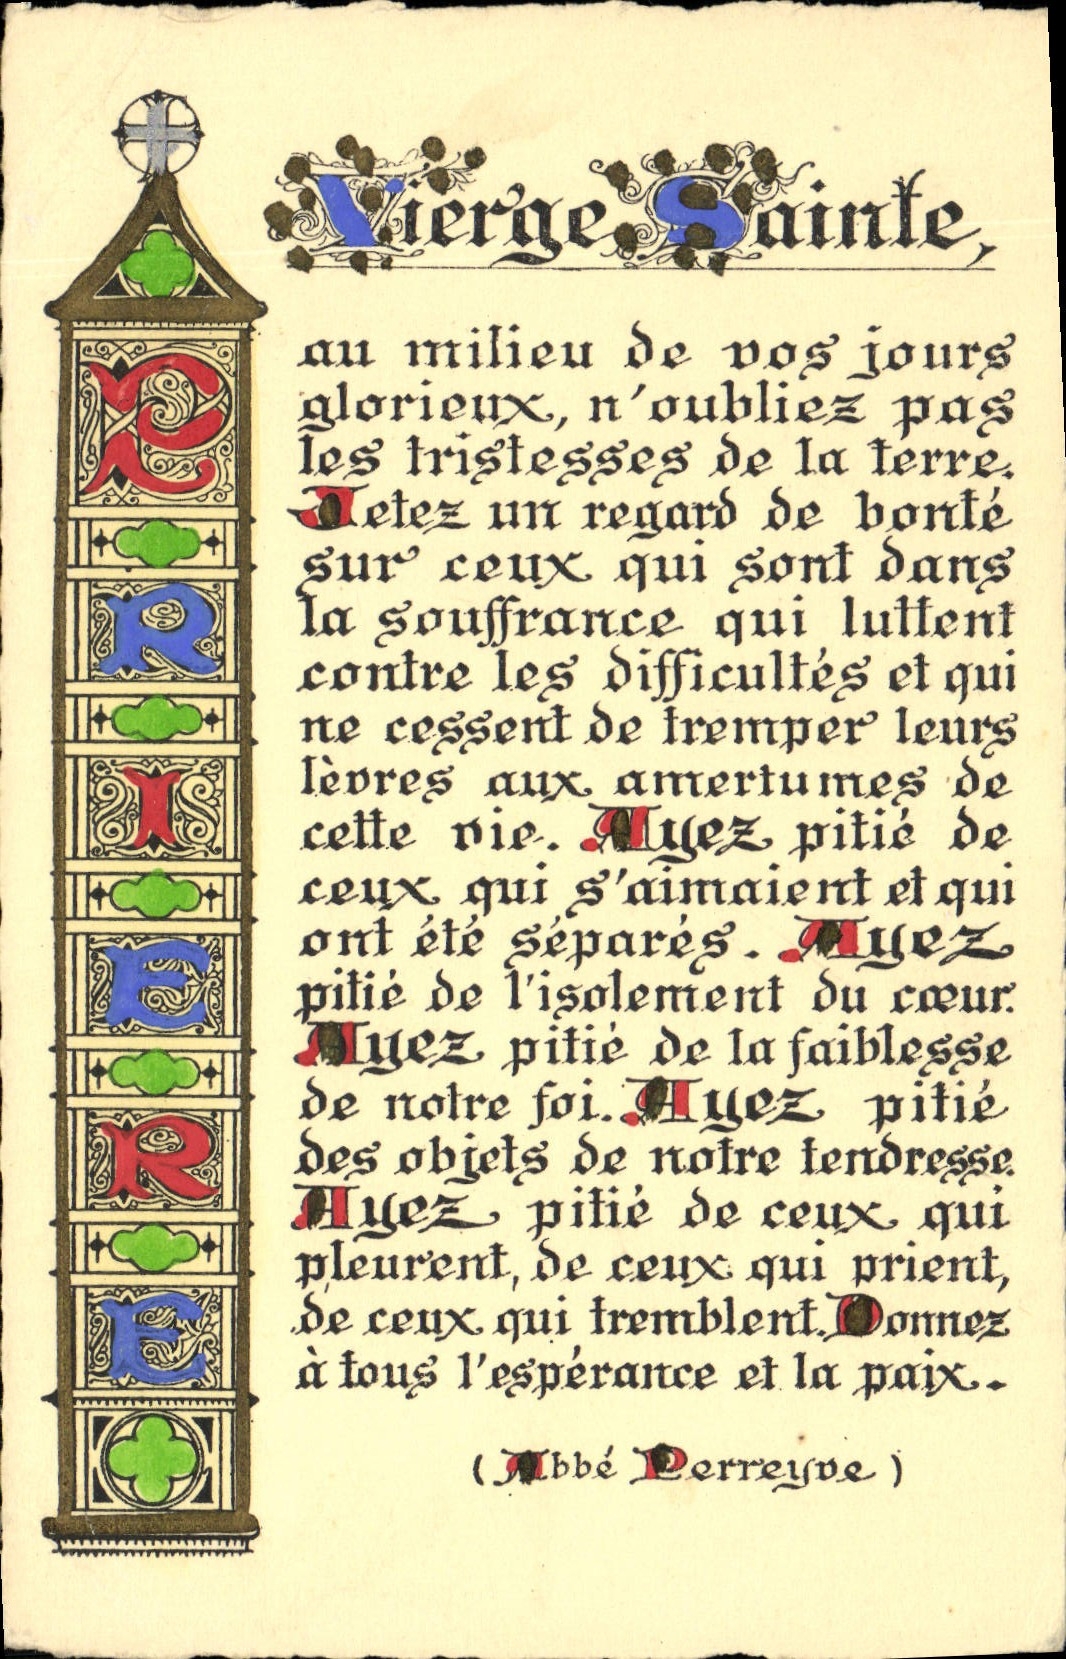 PRIERE
Vierge Sainte,
au milieu de vos jours
glorieux, n'oubliez pas
les tristesses de la terre.
Jetez un regard de bonté
sur ceux qui sont dans
la souffrance qui luttent
contre les difficultés et qui
ne cessent de tremper leurs
lèvres aux amertumes de
cette vie. Ayez pitié de
ceux qui s'aimaient et qui
ont été séparés. Ayez
pitié de l'isolement du cœur.
Ayez pitié de la faiblesse
de notre foi. Ayez pitié
des objets de notre tendresse.
Ayez pitié de ceux qui
pleurent, de ceux qui prient,
de ceux qui tremblent. Donnez
à tous l'espérance et la paix.
(Abbé Perreyve)